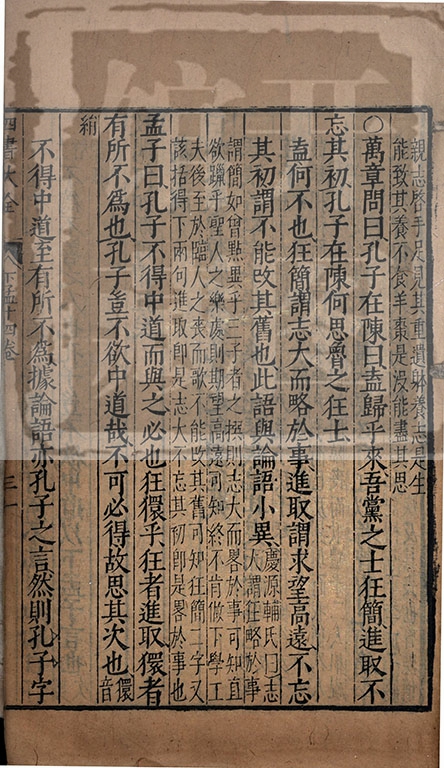 親志啓手足見其重遺躰養志是生
能致其養不食羊棗是沒能盡其思
○萬章問曰孔子在陳曰盍歸乎來吾黨之士狂簡進取不
忘其初孔子在陳何思魯之狂士
盍何不也狂簡謂志大而略於事進取謂求望高遠不忘
其初謂不能改其舊也此語與論語小異慶源輔氏曰志
大謂狂略於事
謂簡如曾點異乎三子者之撰則志大而畧於事可知直
欲躐乎聖人之樂處則期望高遠可知終不肯做下學工
夫後至於臨人之喪而歌不能改其舊可知狂簡二字又
該括得下兩句進取即是志大不忘其初即是畧於事也
孟子曰孔子不得中道而與之必也狂獧乎狂者進取獧者
有所不爲也孔子豈不欲中道哉不可必得故思其次也獧
音
絹
不得中道至有所不爲據論語亦孔子之言然則孔子字
四書大全
下孟十四卷